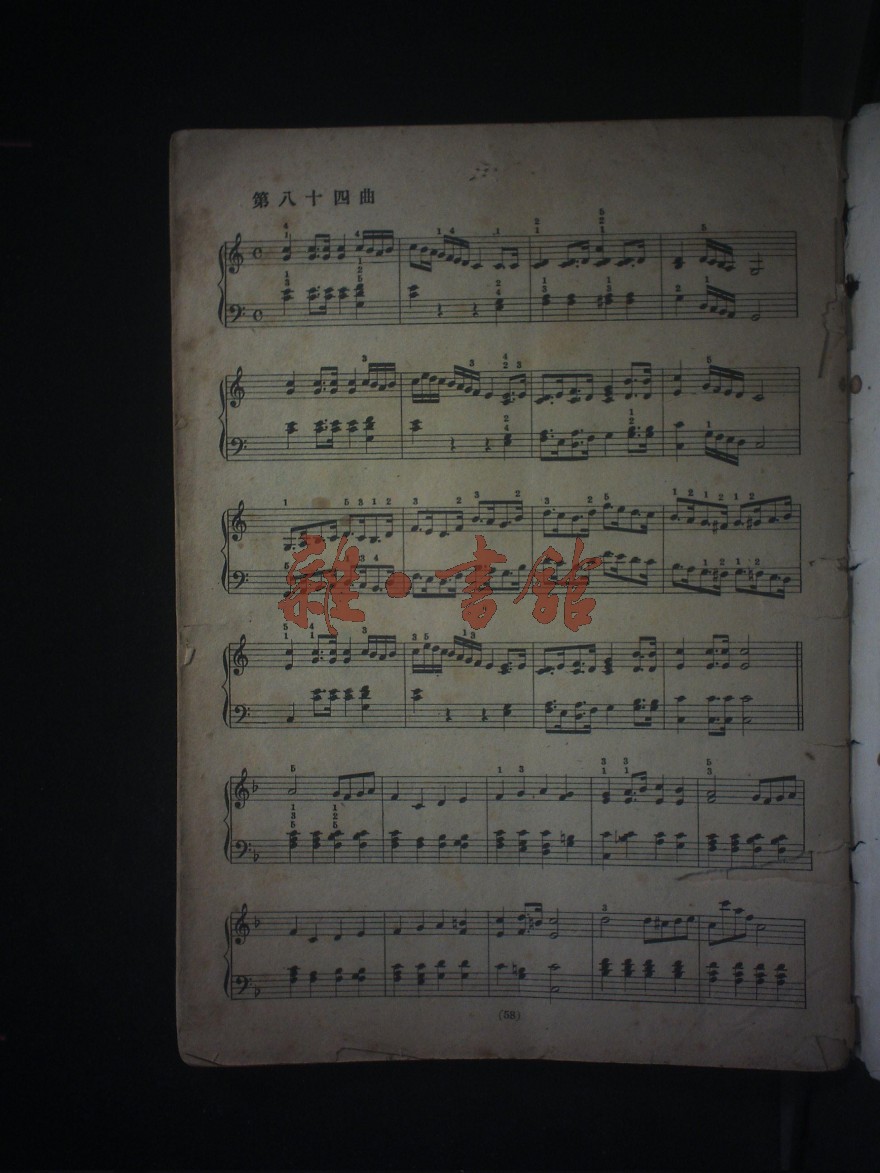 第八十四曲
雜·書館
(58)